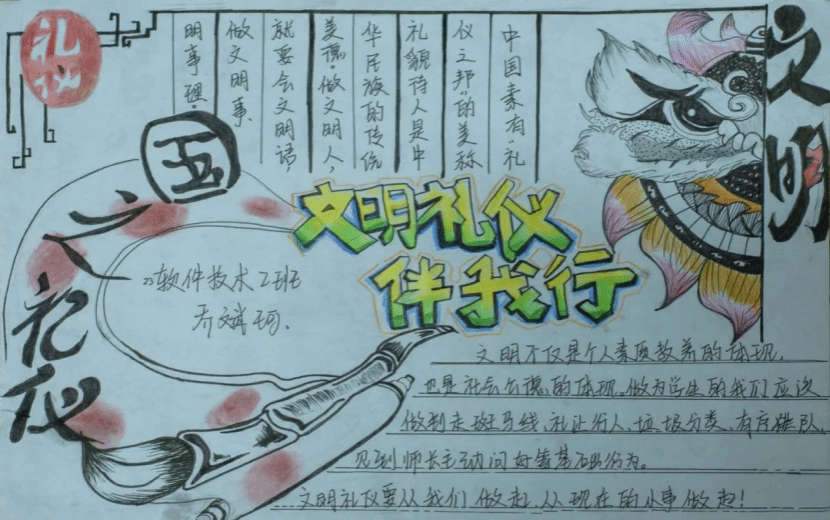 礼仪
文明
中国素有"礼
仪之邦"的美称
礼貌待人是中
华民族的传统
美德。做文明人,
就要会文明语,
做文明事、
明事理。
国之礼仪
文明礼仪
伴我行
23软件技术2班
乔斌珂、
文明不仅是个人素质教养的体现,
也是社会公德的体现。做为学生的我们应该
做到走斑马线、礼让行人、垃圾分类、有序排队、
见到师长主动问好等基础行为。
文明礼仪要从我们做起,从现在的小事做起!